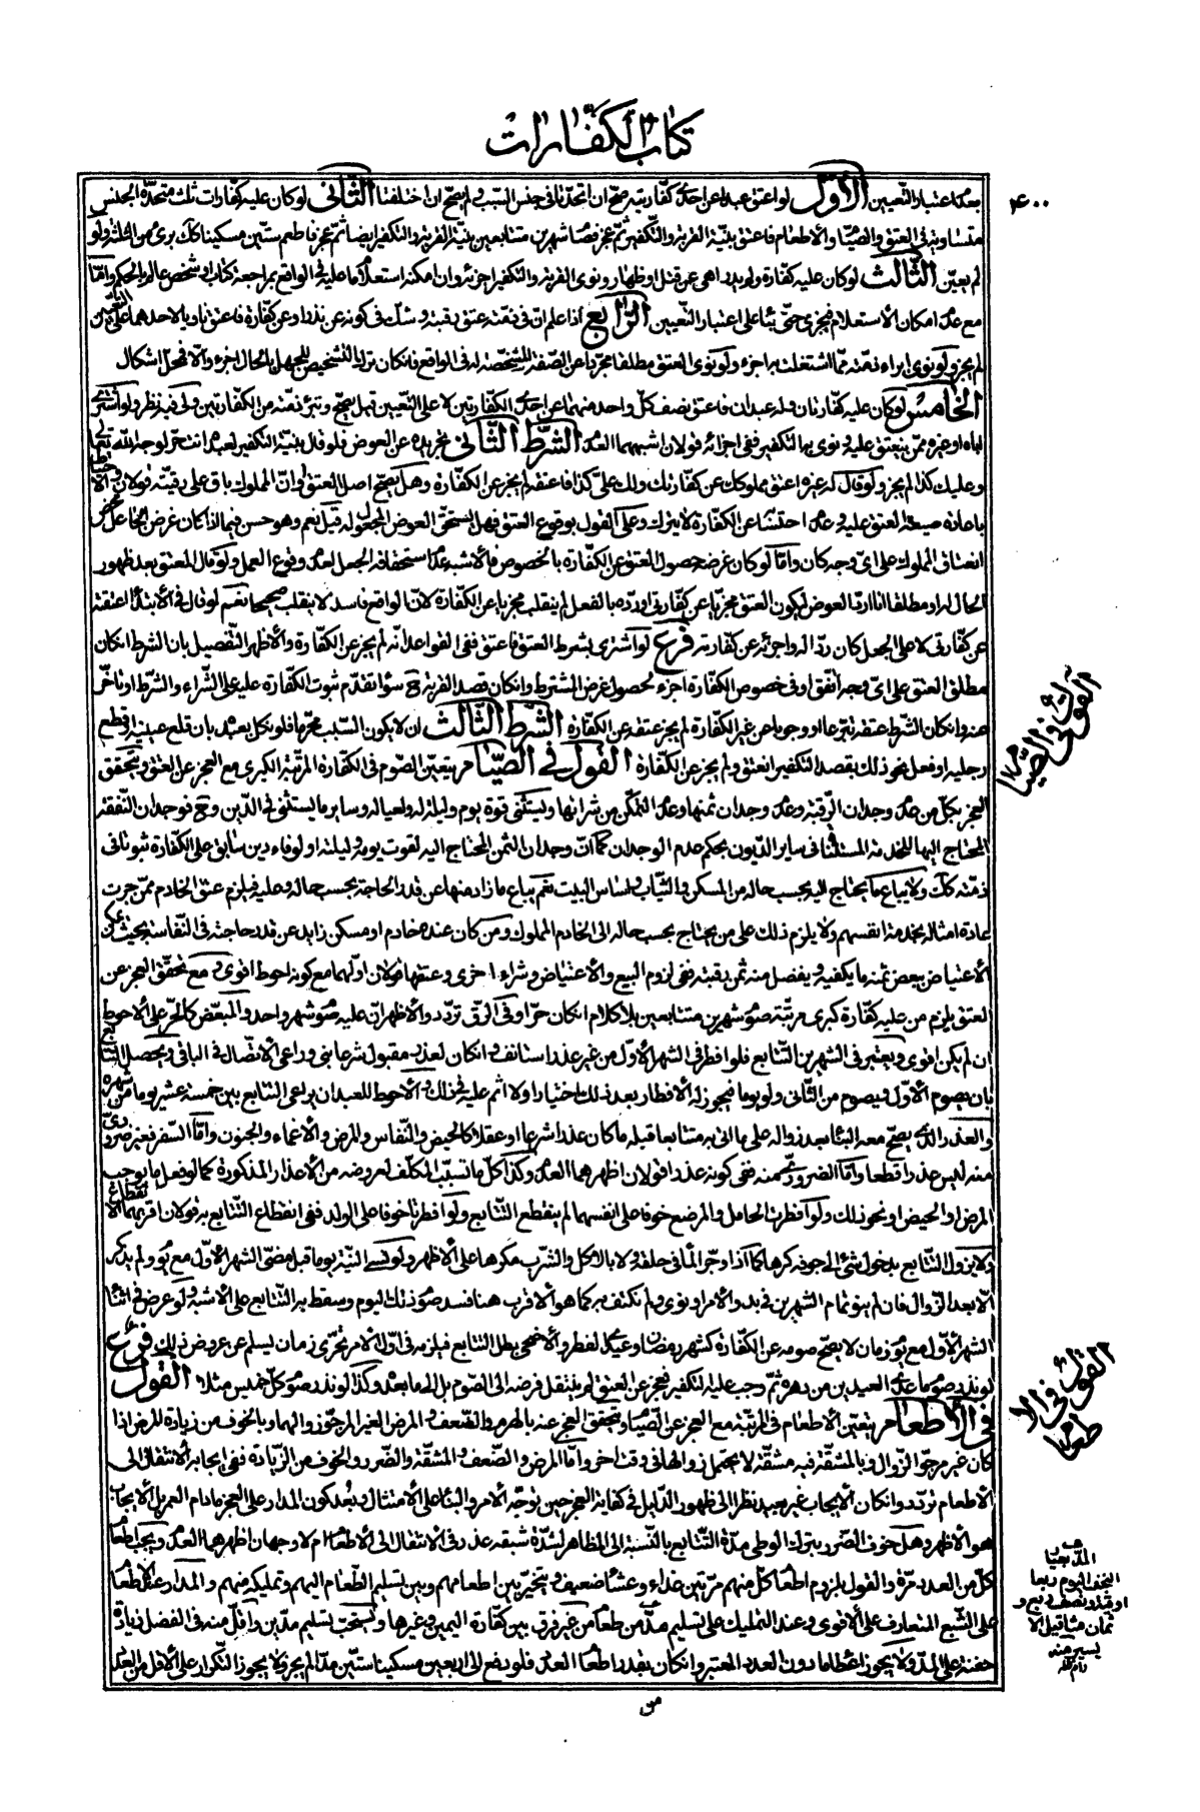 كتاب الكفارات
٤٠٠
بعدم اعتبار التّعيين الأوّل لو اعتق عبدا عن احدى كفّارتيه صحّ ان اتّحدتا فى جنس السّبب ولم يصحّ ان اختلفتا الثّانى لو كان عليه كفّارات ثلث متّحدة الجنس
متساوية فى العتق والصّيام والأطعام فاعتق بنيّة القربة والتّكفير ثمّ عجز فصام شهرين متتابعين بنيّة القربة والتّكفير ايضا ثمّ عجز فاطعم ستّين مسكينا كك برئ من الثلثة ولو
لم يعيّن الثّالث لو كان عليه كفّارة ولم يدر اهى عن قتل او ظهار ونوى القربة والتّكفير اجزئه وان امكنه استعلام ما عليه فى الواقع بمراجعة كتاب او شخص عالم بالحكم وامّا
مع عدم امكان الأستعلام فيجزى حتّى بناء على اعتبار التّعيين الرّابع اذا علم انّ فى ذمّته عتق رقبة وشكّ فى كونه عن نذر او عن كفّارة فاعتق ناويا لاحدهما على التّعيين
لم يجز ولو نوى ابراء ذمّته ممّا اشتغلت به اجزء ولو نوى العتق مطلقا مجرّدا عن الصّفة المشخّصة له فى الواقع فانكان ترك التّشخيص للجهل بالحال اجزء والّا فمحلّ اشكال
الخامس لو كان عليه كفّارتان وله عبدان فاعتق نصف كلّ واحد منهما عن احدى الكفّارتين لا على التّعيين قيل يصحّ وتبرء ذمّته من الكفّارتين وفيه نظر ولو اشترى
اباه او غيره ممّن ينعتق عليه ونوى به التّكفير ففى اجزائه قولان اشبههما العدم الشّرط الثّانى تجريده عن العوض فلو قال بنيّة التّكفير لعبده انت حرّ لوجه الله تعالى
وعليك كذا لم يجز ولو قال له غيره اعتق مملوكك عن كفّارتك ولك علىّ كذا فاعتقه لم يجز عن الكفّارة وهل يصحّ اصل العتق او انّ المملوك باق على رقّيته قولان والأحتياط
باعادة صيغة العتق عليه وعدم احتسابه عن الكفّارة لا يترك وعلى القول بوقوع العتق فهل يستحقّ العوض المجعول له قيل نعم وهو حسن فيما اذا كان غرض الجاعل محض
انعتاق المملوك على اىّ وجه كان وامّا لو كان غرضه حصول العتق عن الكفّارة بالخصوص فالأشبه عدم استحقاقه الجعل لعدم وقوع العمل ولو قال المعتق بعد ظهور
الحال له او مطلقا انا اردّ العوض ليكون العتق مجزيا عن كفّارتى او ردّه بالفعل لم ينقلب مجزيا عن الكفّارة لانّ الواقع فاسد لا ينقلب صحيحا نعم لو قال فى الأبتداء اعتقته
عن كفّارتى لا على الجعل كان ردّا له واجزئه عن كفّارته فرع لو اشترى بشرط العتق فاعتق ففى القواعد انّه لم يجز عن الكفّارة والأظهر التّفصيل بان الشرط انكان
مطلق العتق على اىّ وجه اتّفق او فى خصوص الكفّارة اجزء لحصول غرض المشترط وانكان قصد القربة ح سواء تقدّم ثبوت الكفّارة عليه على الشّراء والشّرط او تأخّر
عنه وانكان الشّرط عتقه تبرّعا او وجوبا من غير الكفّارة لم يجز عتقه عن الكفّارة الشّرط الثّالث ان لا يكون السّبب محرّما فلو نكل بعبده بان قلع عينيه او قطع
رجليه او فعل نحو ذلك بقصد التّكفير انعتق ولم يجز عن الكفّارة القول فى الصّيام يتعيّن الصّوم فى الكفّارة المرتّبة الكبرى مع العجز عن العتق ويتحقّق
العجز بكلّ من عدم وجدان الرّقبة وعدم وجدان ثمنها وعدم التّمكّن من شرائها ويستثنى قوة يوم وليلة له ولعياله وساير ما يستثنى فى الدّين وح فوجدان النّفقة
المحتاج اليها للخدمة المستثناة فى ساير الدّيون بحكم عدم الوجدان كما انّ وجدان الثّمن المحتاج اليه لقوت يومه وليلته او لوفاء دين سابق على الكفّارة ثبوتا فى
ذمّته كك ولا يباع ما يحتاج اليه بحسب حاله من المسكن والثّياب واساس البيت نعم يباع ما زاد منها عن قدر الحاجة بحسب حاله وعليه فيلزم عتق الخادم ممّن جرت
عادة امثاله بخدمة انفسهم ولا يلزم ذلك على من يحتاج بحسب حاله الى الخادم المملوك ومن كان عنده خادم او مسكن زايد عن قدر حاجته فى النّفاسة بحيث يمكن
الأعتياض ببعض ثمنه ما يكفيه ويفضل منه ثمن رقبة ففى لزوم البيع والأعتياض وشراء اخرى وعتقها قولان اوّلهما مع كونه احوط اقوى ومع تحقّق العجز عن
العتق يلزم من عليه كفّارة كبرى مرتّبة صوم شهرين متتابعين بلا كلام انكان حرّا وفى الرّق تردّد والأظهر انّ عليه صوم شهر واحد والمبعّض كالحرّ على الأحوط
ان لم يكن اقوى ويعتبر فى الشهرين التّتابع فلو افطر فى الشهر الأوّل من غير عذر استانف وانكان لعذر مقبول شرعا بنى وراعى الأتّصال فى الباقى ويحصل التّتابع
بان يصوم الأوّل ويصوم من الثّانى ولو يوما فيجوز له الأفطار بعد ذلك اختيارا ولا اثم عليه فى ذلك والأحوط للعبد ان يراعى التّتابع بين خمسة عشر يوما من شهره
والعذر الّذى يصحّ معه البناء بعد زواله على ما اتى به متتابعا قبله ما كان عذرا شرعا او عقلا كالحيض والنّفاس والمرض والأغماء والجنون وامّا السّفر فغير ضرورىّ
منه ليس عذرا قطعا وامّا الضرورىّ منه ففى كونه عذرا قولان اظهرهما العدم وكذا كلّ ما تسبّب المكلّف لعروضه من الأعذار المذكورة كما لو فعل ما يوجب
المرض او الحيض او نحو ذلك ولو افطرت الحامل والمرضع خوفا على انفسهما لم ينقطع التّتابع ولو افطرتا خوفا على الولد ففى انقطاع التّتابع به قولان اقربهما الأنقطاع
ولا يزول التّتابع بدخول شئ الى جوفه كرها كما اذا وجر الماء فى حلقه ولا بالأكل والشّرب مكرها على الأظهر ولو نسى النّية يوما قبل مضىّ الشهر الأوّل مع يوم ولم يذكر
الّا بعد الزّوال فان لم ينو تمام الشهرين فى بدو الأمر او نوى ولم نكتف به كما هو الأقرب هنا فسد صوم ذلك اليوم وسقط به التّتابع على الأشبه ولو عرض فى اثناء
الشهر الأوّل مع يوم زمان لا يصحّ صومه عن الكفّارة كشهر رمضان وعيدى الفطر والأضحى بطل التّتابع فيلزمه فى اوّل الأمر تحرّى زمان يسلم عن عروض ذلك فرع
لو نذر صوم ما عدى العيدين من دهره ثمّ وجب عليه التّكفير فعجز عن العتق لم ينتقل فرضه الى الصّوم بل الى ما بعده وكذا لو نذر صوم كلّ خميس مثلا القول
فى الأطعام يتعيّن الأطعام فى المرتّبة مع العجز عن الصّيام ويتحقّق العجز عنه بالهرم والضّعف والمرض الغير المرجوّ زوالهما وبالخوف من زيادة المرض اذا
كان غير مرجوّ الزّوال وبالمشقّة فيه مشقّة لا يحتمل زوالها فى وقت اخر وامّا المرض والضّعف والمشقّة والضّرر والخوف من الزّيادة ففى ايجابه الأنتقال الى
الأطعام تردّد وانكان الأيجاب غير بعيد نظرا الى ظهور الدّليل فى كفاية العجز حين توجّه الأمر والبناء على الأمتثال وبعد كون المدار على العجز مادام العمر بل الأيجاب
هو الأظهر وهل خوف الضّرر بترك الوطى مدّة التّتابع بالنّسبة الى المظاهر لشدّة شبقه عذر فى الأنتقال الى الأطعام ام لا وجهان اظهرهما العدم ويجب اطعام
كلّ من العدد مرّة والقول بلزوم اطعام كلّ منهم مرّتين غداء وعشاء ضعيف ويتخيّر بين اطعامهم وبين تسليم الطّعام اليهم وتمليكه منهم والمدار عند الأطعام
على الشّبع المتعارف على الأقوى وعند التّمليك على تسليم مدّ من طعام من غير فرق بين كفّارة اليمين وغيرها ويستحبّ تسليم مدّين واقلّ منه فى الفضل زيادة
حفنة على المدّ ولا يجوز اعطاء ما دون العدد المعتبر وانكان بقدر اطعام العدد فلو دفع الى اربعين مسكينا ستّين مدّا لم يجز ولا يجوز التّكرار على الأقل من العدد
من
القول فى الصّيام
القول فى الاطعام
المدّ بعيار
النجف اليوم ربعا
اوقية ونصف ربع و
ثمان مثاقيل الّا
يسير منه
دام ظلّه